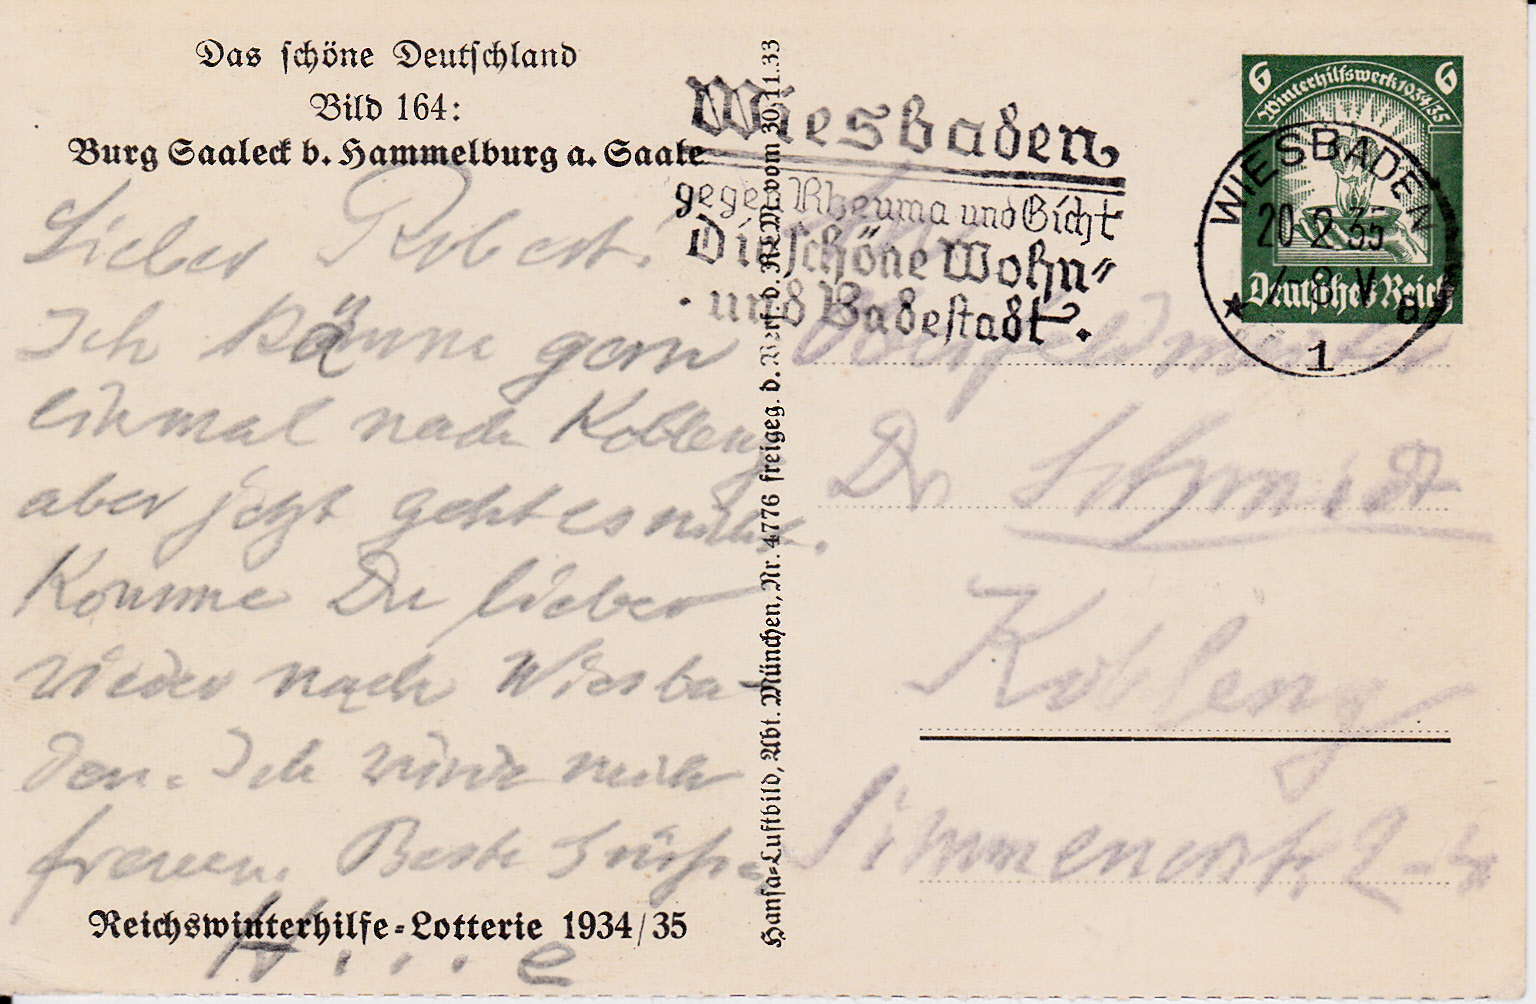 Das schöne Deutschland
Bild 164:
Burg Saaleck b. Hammelburg a. Saale
Lieber Robert!
Ich käme gern
einmal nach Koblenz
aber jetzt geht es nicht.
Komme Du lieber
wieder nach Wiesba-
den. Ich würde mich
freuen. Beste Grüße
H....e
Reichswinterhilfe-Lotterie 1934/35
Hansa-Luftbild, Abt. München, Nr. 4776 freigeg. d. Verf. d. RLM. vom 30.11.33
Wiesbaden
gegen Rheuma und Gicht
Die schöne Wohn-
und Badestadt.
6 6
Winterhilfswerk 1934/35
Deutsches Reich
WIESBADEN
20.2.35
-8 V
* a
1
Dr Schmidt
Koblenz
Simmernstr 2-4